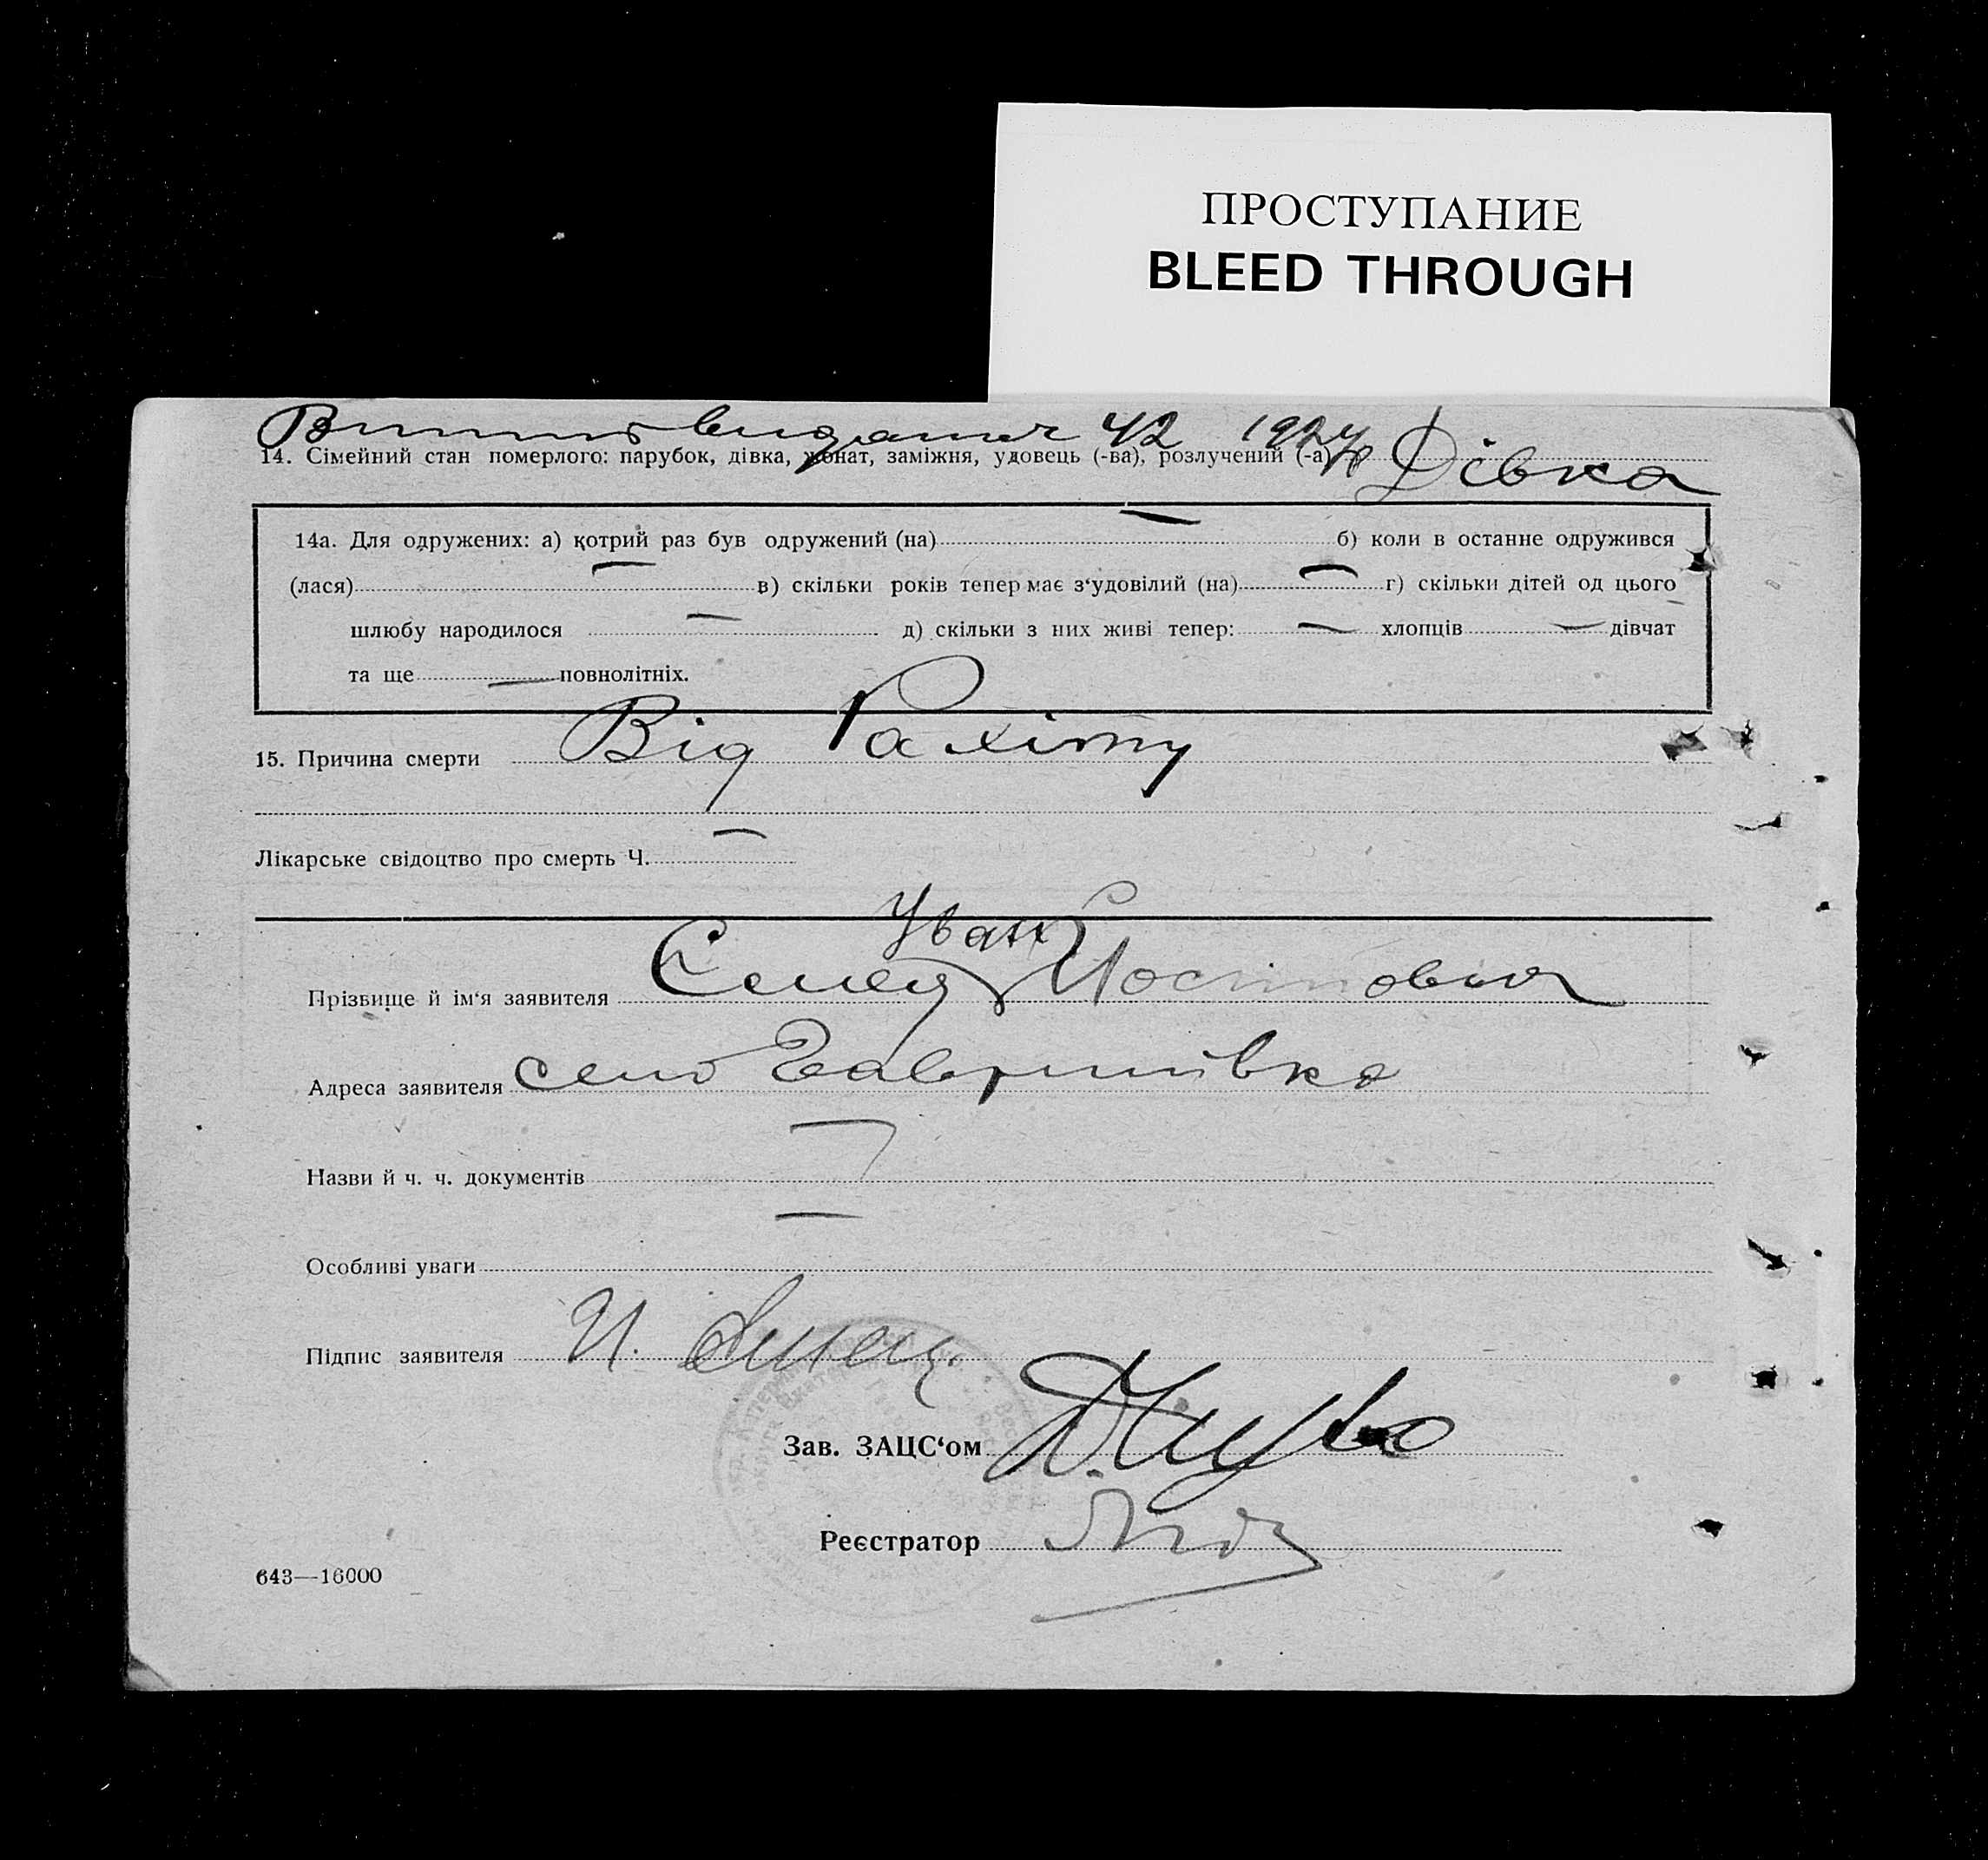 ПРОСТУПАНИЕ
BLEED THROUGH
42 1924
14. Сімейний стан померлого: парубок, дівка, жонат, заміжня, удовець (-ва), розлучений (-а) Дівка
14а. Для одружених: а) котрий раз був одружений (на) — б) коли в останнє одружився
(лася) — в) скільки років тепер має з‘удовілий (на) — г) скільки дітей од цього
шлюбу народилося — д) скільки з них живі тепер: — хлопців — дівчат
та ще — повнолітніх.
15. Причина смерти Від Рахіту
Лікарське свідоцтво про смерть Ч. —
Прізвище й ім‘я заявителя Йосипович
Адреса заявителя село Гаврилівка
Назви й ч. ч. документів —
Особливі уваги
Підпис заявителя
Зав. ЗАЦС‘ом
Реєстратор
643—16000